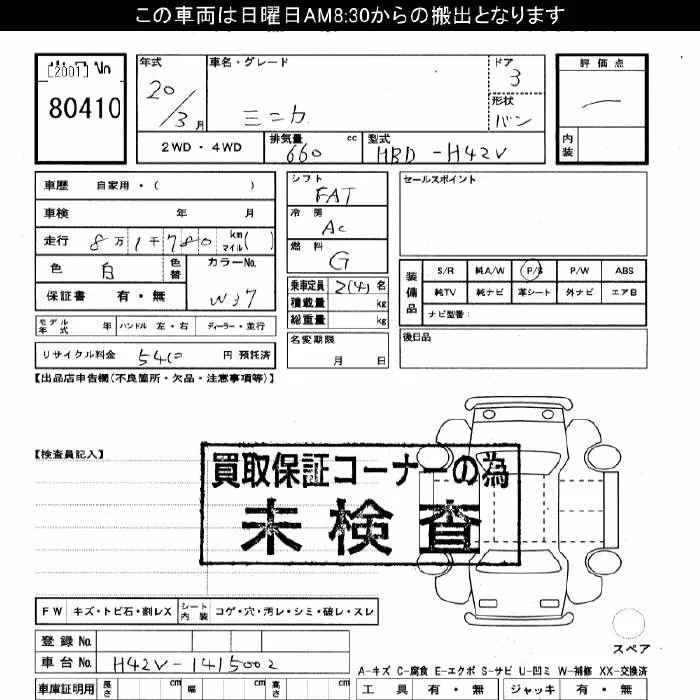 この車両は日曜日AM8:30からの搬出となります
[2001] No
80410
年式
20/3月
車名・グレード
ミニカ
ドア
3
形状
バン
評価点
内装
2WD・4WD
排気量
660 cc
型式
HBD-H42V
車歴 自家用・( )
車検 年 月
走行 8万1千780 km マイル( )
色 白
色替
カラーNo.
W37
保証書 有・無
モデル年式 年
ハンドル 左・右
ディーラー・並行
リサイクル料金 5410 円 預託済
シフト
FAT
冷房
AC
燃料
G
乗車定員 2(4) 名
積載量 kg
総重量 kg
名変期限
月 日
セールスポイント
装備品
S/R 純A/W P/S P/W ABS
純TV 純ナビ 革シート 外ナビ エアB
ナビ型番:
後日品
【出品店申告欄(不良箇所・欠品・注意事項等)】
【検査員記入】
買取保証コーナーの為
未検査
FW キズ・トビ石・割レX
シート内装 コゲ・穴・汚レ・シミ・破レ・スレ
スペア
登録No.
車台No. H42V-1415002
A-キズ C-腐食 E-エクボ S-サビ U-凹ミ W-補修 XX-交換済
車庫証明用 長さ cm 幅 cm 高さ cm
工具 有・無 ジャッキ 有・無